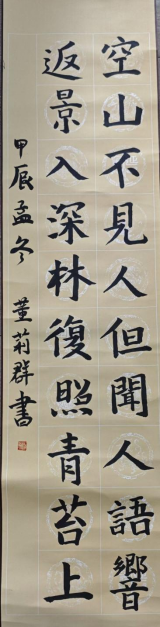 空山不見人但聞人語響
返景入深林復照青苔上
甲辰孟冬 董莉群書